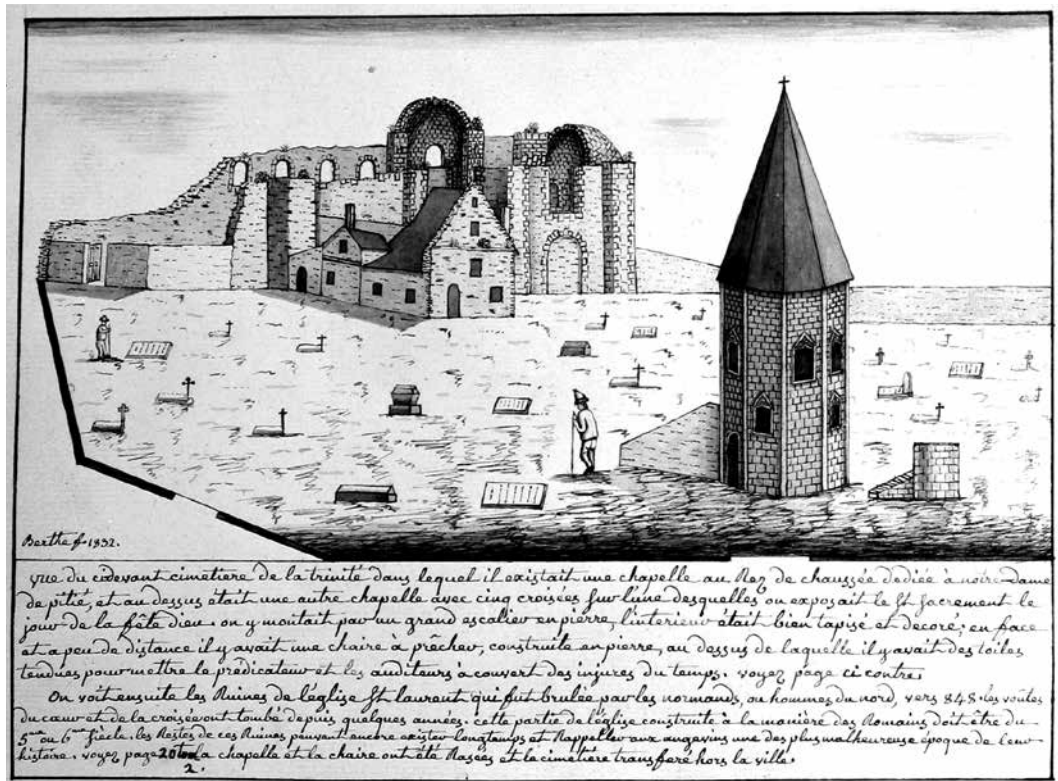 Berthe f. 1832.
vue du cidevant cimetiere de la trinité dans lequel il existait une chapelle au Rez de chaussée dediée à notre-Dame
de pitié, et au dessus était une autre chapelle avec cinq croisées sur l'une desquelles on exposait le St Sacrement le
jour de la fête dieu. on y montait par un grand escalier en pierre, l'interieur était bien tapisé et decoré; en face
et a peu de distance il y avait une chaire à prêcher, construite en pierre, au dessus de laquelle il y avait des toiles
tendues pour mettre le prédicateur et les auditeurs à couvert des injures du temps. voyez page ci contre.
On voit ensuite les Ruines de l'église St laurent qui fut brulée par les normands, ou hommes du nord, vers 848. les voûtes
du cœur et de la croisée ont tombé depuis quelques années. cette partie de l'église construite à la manière des Romains doit être du
5me ou 6me siecle. les Restes de ces Ruines peuvent encore exister longtemps et Rappeller aux angevins une des plus malheureuse époque de leur
histoire. voyez page la chapelle et la chaire ont été Rasées et le cimetiere transferé hors la ville.
2.